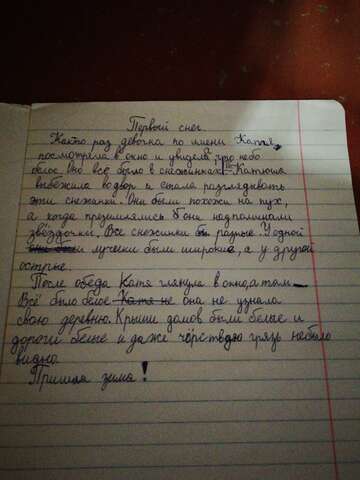 Первый снег.
Както раз девочка по имени Катя
посмотрела в окно и увидела что небо
белое оно всё было в снежинках! Катюша
выбежила во двор и стала разглядывать
эти снежинки. Они были похожи на пух,
а когда приземлялись они надпоминали
звёздочки. Все снежинки разные. У одной
лучики были широкие, а у другой
острые.
После обеда Катя глянула в окно, а там
Всё было белое Катя не она не узнала
свою деревню. Крыши домов были белые и
дороги белые и даже чёрствую грязь небыло
видно.
Пришла зима!